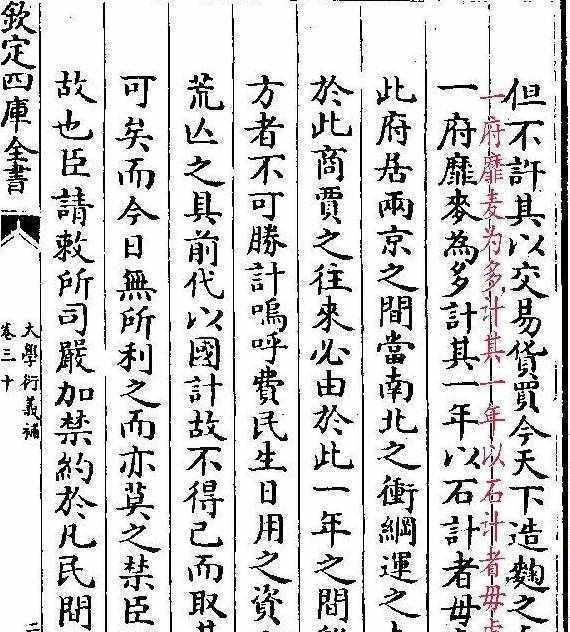 但不許其以交易貨買今天下造麴之
一府靡麦为多计其一年以石计者毋
一府靡麥為多計其一年以石計者毋
此府居兩京之間當南北之衝綱運之
於此商賈之往來必由於此一年之間
方者不可勝計嗚呼費民生日用之資
荒亾之具前代以國計故不得已而取其
可矣而今日無所利之而亦莫之禁臣
故也臣請敕所司嚴加禁約於凡民間
欽定四庫全書
大學衍義補
卷三十